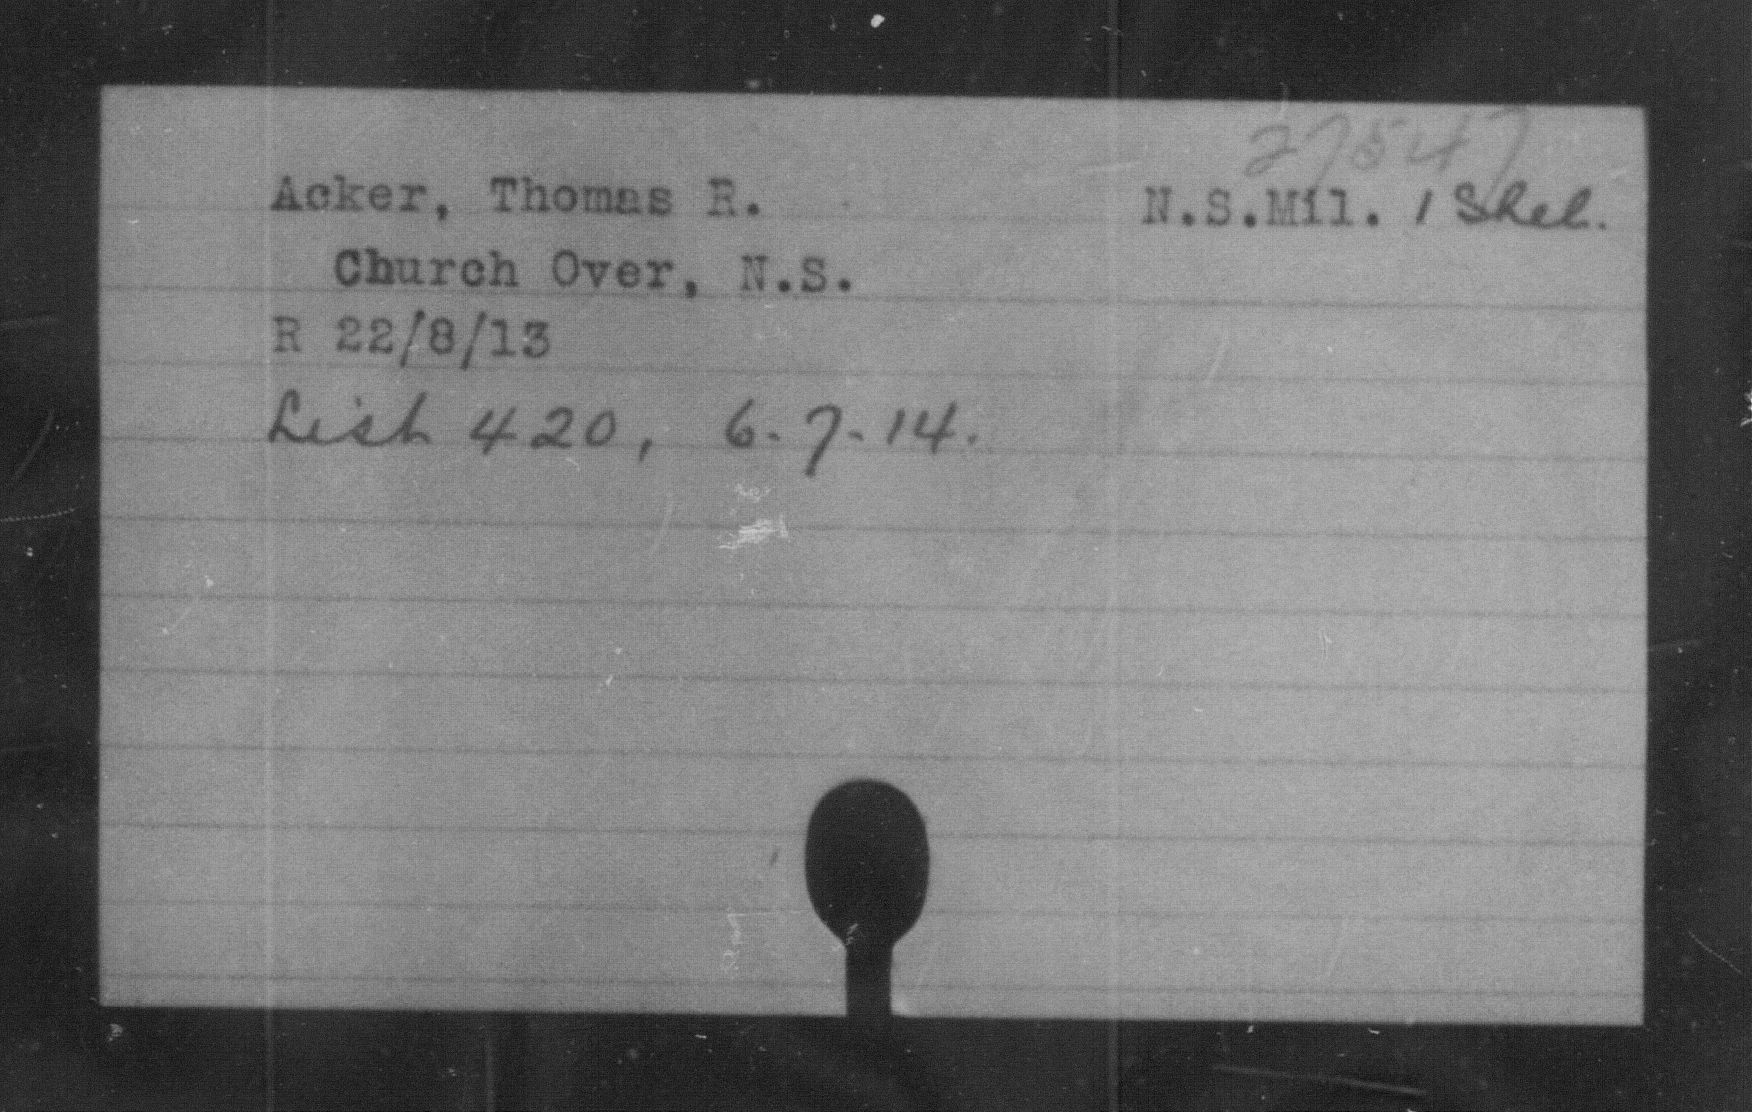 27547
Acker, Thomas R. N.S.Mil. 1 Shel.
Church Over, N.S.
R 22/8/13
List 420, 6-7-14.